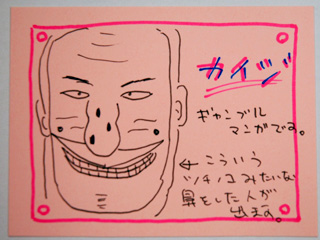 カイジ
ギャンブル
マンガでる。
←こういう
ツチノコみたいな
鼻をした人が
出ます。